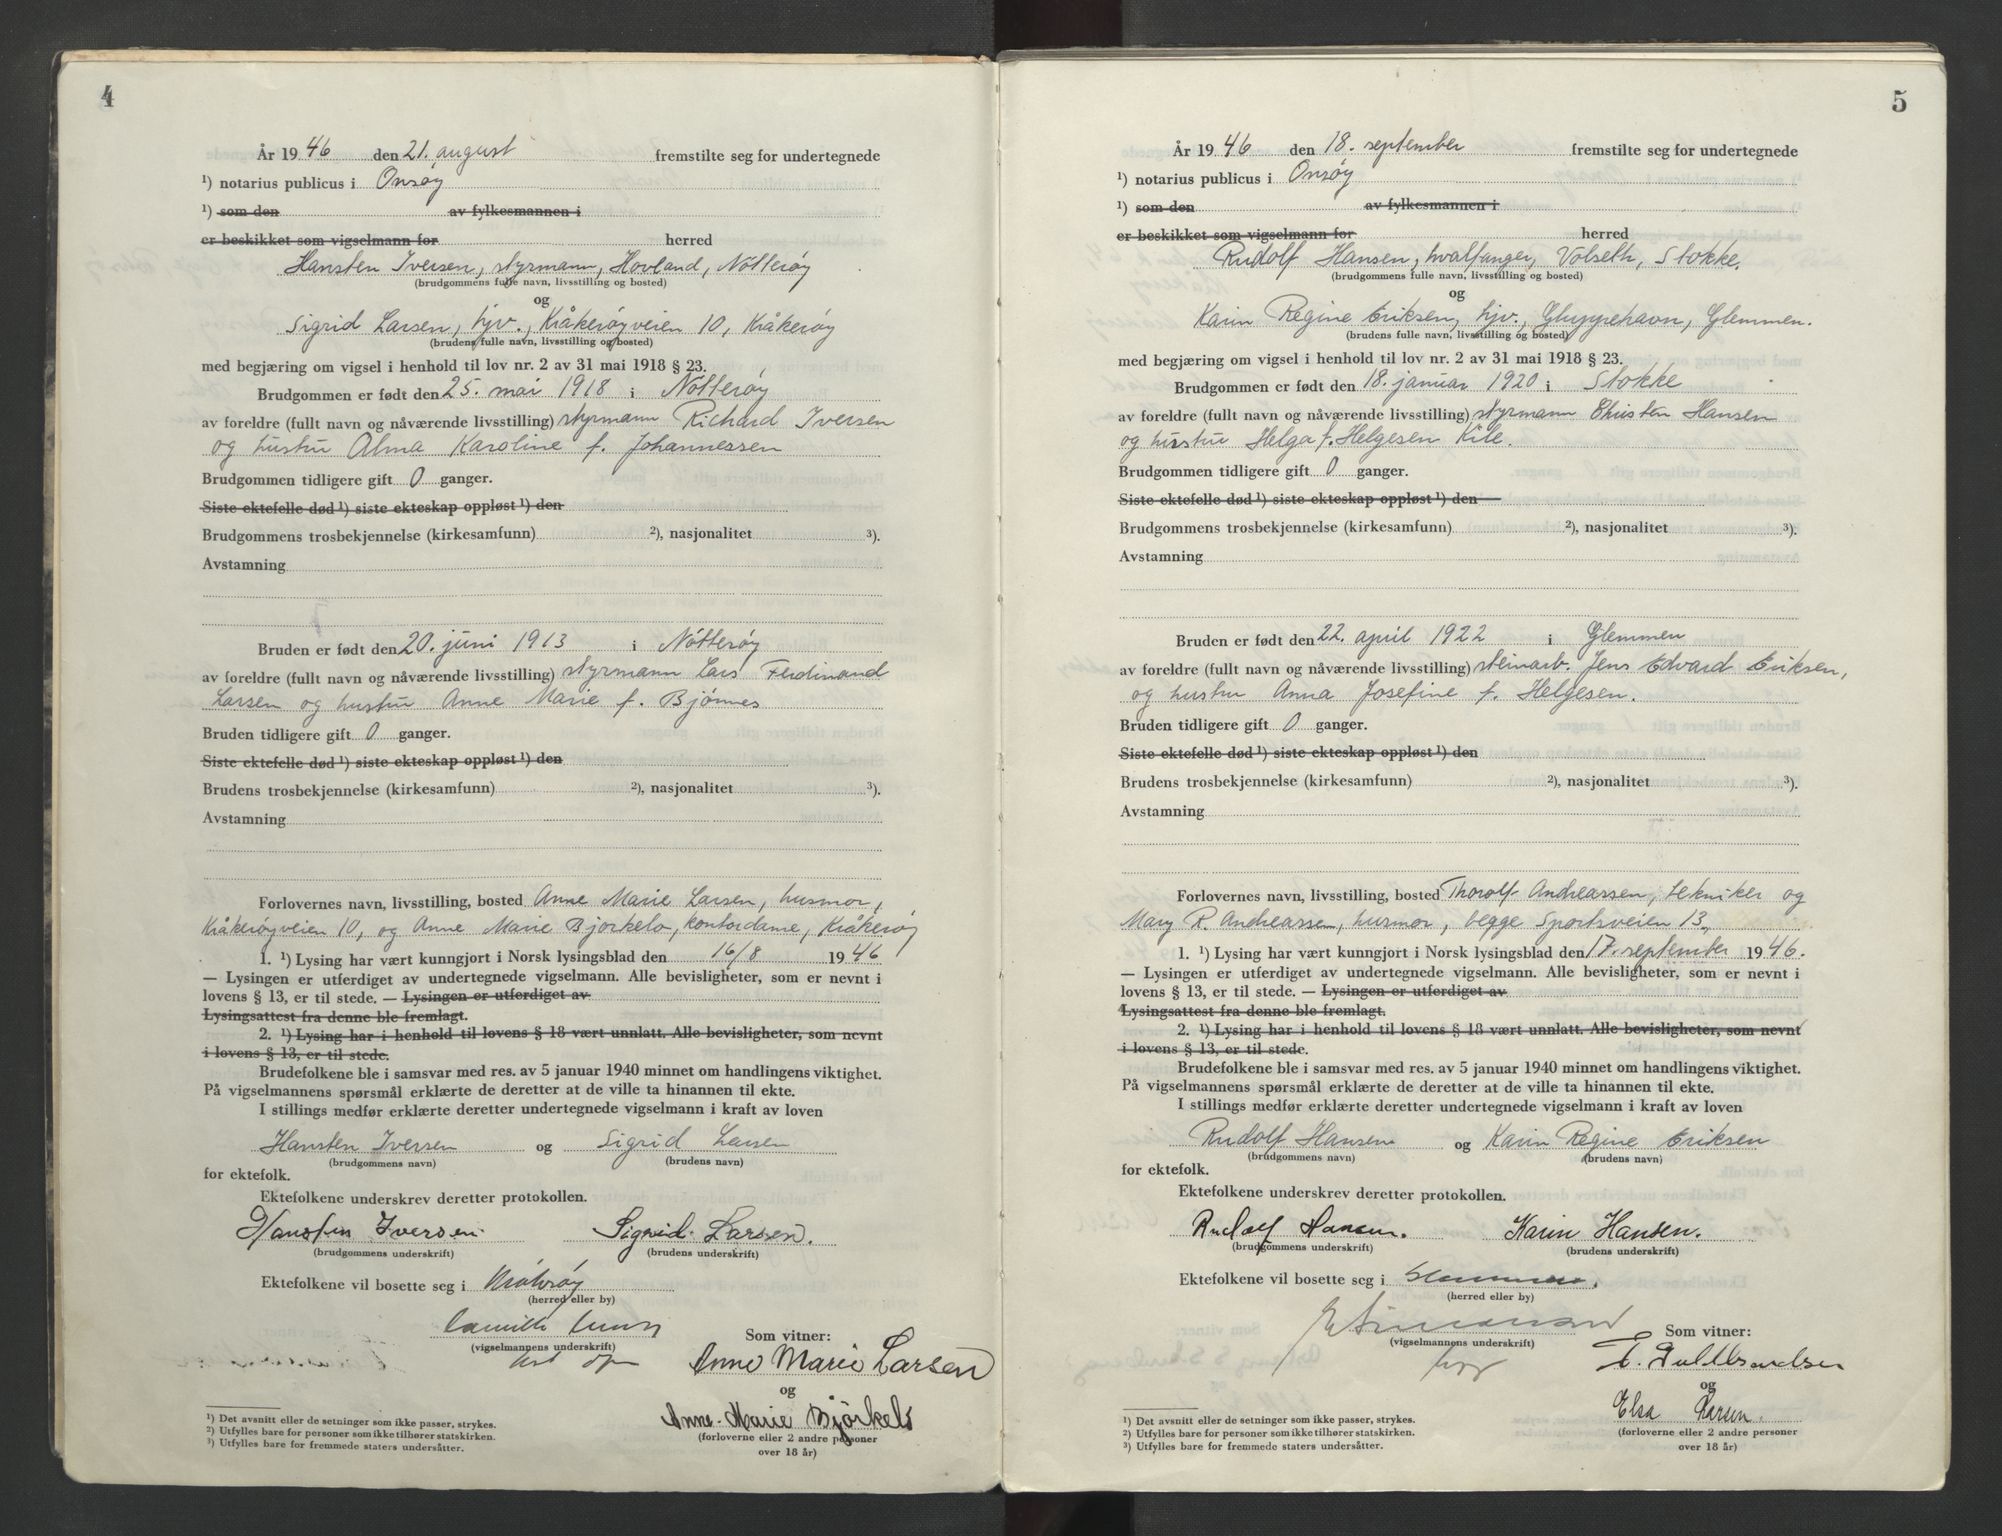 4
År 19 46 den 21. august fremstilte seg for undertegnede
¹) notarius publicus i Onsøy
¹) som den av fylkesmannen i
er beskikket som vigselmann for herred
Hansten Iversen, styrmann, Hovland, Nøtterøy
(brudgommens fulle navn, livsstilling og bosted)
og
Sigrid Larsen, hjv., Kråkerøyveien 10, Kråkerøy
(brudens fulle navn, livsstilling og bosted)
med begjæring om vigsel i henhold til lov nr. 2 av 31 mai 1918 § 23.
Brudgommen er født den 25. mai 1918 i Nøtterøy
av foreldre (fullt navn og nåværende livsstilling) styrmann Richard Iversen
og hustru Alma Karoline f. Johannessen
Brudgommen tidligere gift 0 ganger.
Siste ektefelle død ¹) siste ekteskap oppløst ¹) den
Brudgommens trosbekjennelse (kirkesamfunn) ²), nasjonalitet ³).
Avstamning
Bruden er født den 20. juni 1913 i Nøtterøy
av foreldre (fullt navn og nåværende livsstilling) styrmann Lars Ferdinand
Larsen og hustru Anne Marie f. Bjønnes
Bruden tidligere gift 0 ganger.
Siste ektefelle død ¹) siste ekteskap oppløst ¹) den
Brudens trosbekjennelse (kirkesamfunn) ²), nasjonalitet ³).
Avstamning
Forlovernes navn, livsstilling, bosted Anne Marie Larsen, husmor,
Kråkerøyveien 10, og Anne Marie Bjørkelo, kontordame, Kråkerøy
1. ¹) Lysing har vært kunngjort i Norsk lysingsblad den 16/8 19 46
— Lysingen er utferdiget av undertegnede vigselmann. Alle bevisligheter, som er nevnt i
lovens § 13, er til stede. — Lysingen er utferdiget av
Lysingsattest fra denne ble fremlagt.
2. ¹) Lysing har i henhold til lovens § 18 vært unnlatt. Alle bevisligheter, som nevnt
i lovens § 13, er til stede.
Brudefolkene ble i samsvar med res. av 5 januar 1940 minnet om handlingens viktighet.
På vigselmannens spørsmål erklærte de deretter at de ville ta hinannen til ekte.
I stillings medfør erklærte deretter undertegnede vigselmann i kraft av loven
Hansten Iversen og Sigrid Larsen
(brudgommens navn) (brudens navn)
for ektefolk.
Ektefolkene underskrev deretter protokollen.
Hansten Iversen Sigrid Larsen.
(brudgommens underskrift) (brudens underskrift)
Ektefolkene vil bosette seg i Kråkerøy
(herred eller by)
Som vitner:
(vigselmannens underskrift)
Anne Marie Larsen
og
Anne-Marie Bjørkelo
(forloverne eller 2 andre personer
over 18 år)
¹) Det avsnitt eller de setninger som ikke passer, strykes.
²) Utfylles bare for personer som ikke tilhører statskirken.
³) Utfylles bare for fremmede staters undersåtter.
5
År 19 46 den 18. september fremstilte seg for undertegnede
¹) notarius publicus i Onsøy
¹) som den av fylkesmannen i
er beskikket som vigselmann for herred
Rudolf Hansen, hvalfanger, Volseth, Stokke.
(brudgommens fulle navn, livsstilling og bosted)
og
Karin Regine Eriksen, hjv., Gluppehavn, Glemmen.
(brudens fulle navn, livsstilling og bosted)
med begjæring om vigsel i henhold til lov nr. 2 av 31 mai 1918 § 23.
Brudgommen er født den 18. januar 1920 i Stokke
av foreldre (fullt navn og nåværende livsstilling) styrmann Christen Hansen
og hustru Helga f. Helgesen Kile.
Brudgommen tidligere gift 0 ganger.
Siste ektefelle død ¹) siste ekteskap oppløst ¹) den
Brudgommens trosbekjennelse (kirkesamfunn) ²), nasjonalitet ³).
Avstamning
Bruden er født den 22. april 1922 i Glemmen
av foreldre (fullt navn og nåværende livsstilling) steinarb. Jens Edvard Eriksen,
og hustru Anna Josefine f. Helgesen.
Bruden tidligere gift 0 ganger.
Siste ektefelle død ¹) siste ekteskap oppløst ¹) den
Brudens trosbekjennelse (kirkesamfunn) ²), nasjonalitet ³).
Avstamning
Forlovernes navn, livsstilling, bosted Thorolf Andreassen, tekniker og
Mary R. Andreassen, husmor, begge Sportsveien 13.
1. ¹) Lysing har vært kunngjort i Norsk lysingsblad den 17. september 19 46.
— Lysingen er utferdiget av undertegnede vigselmann. Alle bevisligheter, som er nevnt i
lovens § 13, er til stede. — Lysingen er utferdiget av
Lysingsattest fra denne ble fremlagt.
2. ¹) Lysing har i henhold til lovens § 18 vært unnlatt. Alle bevisligheter, som nevnt
i lovens § 13, er til stede.
Brudefolkene ble i samsvar med res. av 5 januar 1940 minnet om handlingens viktighet.
På vigselmannens spørsmål erklærte de deretter at de ville ta hinannen til ekte.
I stillings medfør erklærte deretter undertegnede vigselmann i kraft av loven
Rudolf Hansen og Karin Regine Eriksen
(brudgommens navn) (brudens navn)
for ektefolk.
Ektefolkene underskrev deretter protokollen.
Rudolf Hansen. Karin Hansen.
(brudgommens underskrift) (brudens underskrift)
Ektefolkene vil bosette seg i Glemmen.
(herred eller by)
Som vitner:
(vigselmannens underskrift)
E. Gulbrandsen
og
Elsa Larsen.
(forloverne eller 2 andre personer
over 18 år)
¹) Det avsnitt eller de setninger som ikke passer, strykes.
²) Utfylles bare for personer som ikke tilhører statskirken.
³) Utfylles bare for fremmede staters undersåtter.